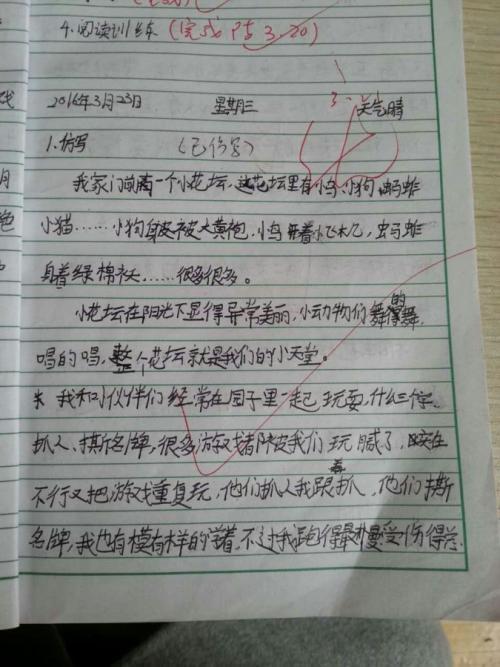 4.阅读训练(完成P53.20)
2016年3月23日 星期三 天气晴
1.仿写 (已仿写)
我家门前有一个小花坛,这花坛里有小鸟、小狗、蚂蚱
小猫……小狗身披大黄袍,小鸟开着小飞机,蚂蚱
身着绿棉袄,……很多很多。
小花坛在阳光下显得异常美丽,小动物们舞的舞,
唱的唱,整个花坛就是我们的小天堂。
我和小伙伴们经常在园子里一起玩耍,什么三个字、
抓人、撕名牌,很多游戏都被我们玩腻了,现在
不行又把游戏重复玩,他们抓人我跟着抓,他们撕
名牌,我也有模有样的学着,不过我跑得最慢受伤得总